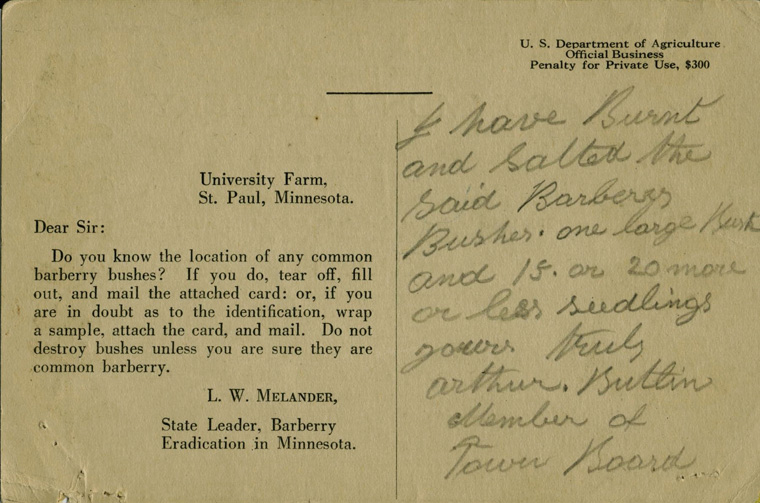 U. S. Department of Agriculture
Official Business
Penalty for Private Use, $300
University Farm,
St. Paul, Minnesota.
Dear Sir:
Do you know the location of any common
barberry bushes? If you do, tear off, fill
out, and mail the attached card: or, if you
are in doubt as to the identification, wrap
a sample, attach the card, and mail. Do not
destroy bushes unless you are sure they are
common barberry.
L. W. Melander,
State Leader, Barberry
Eradication in Minnesota.
I have Burnt
and Salted the
Said Barberys
Bushes. one large Bush
and 15. or 20 more
or less seedlings
yours truly
arthur. Butlin
Member of
Town Board